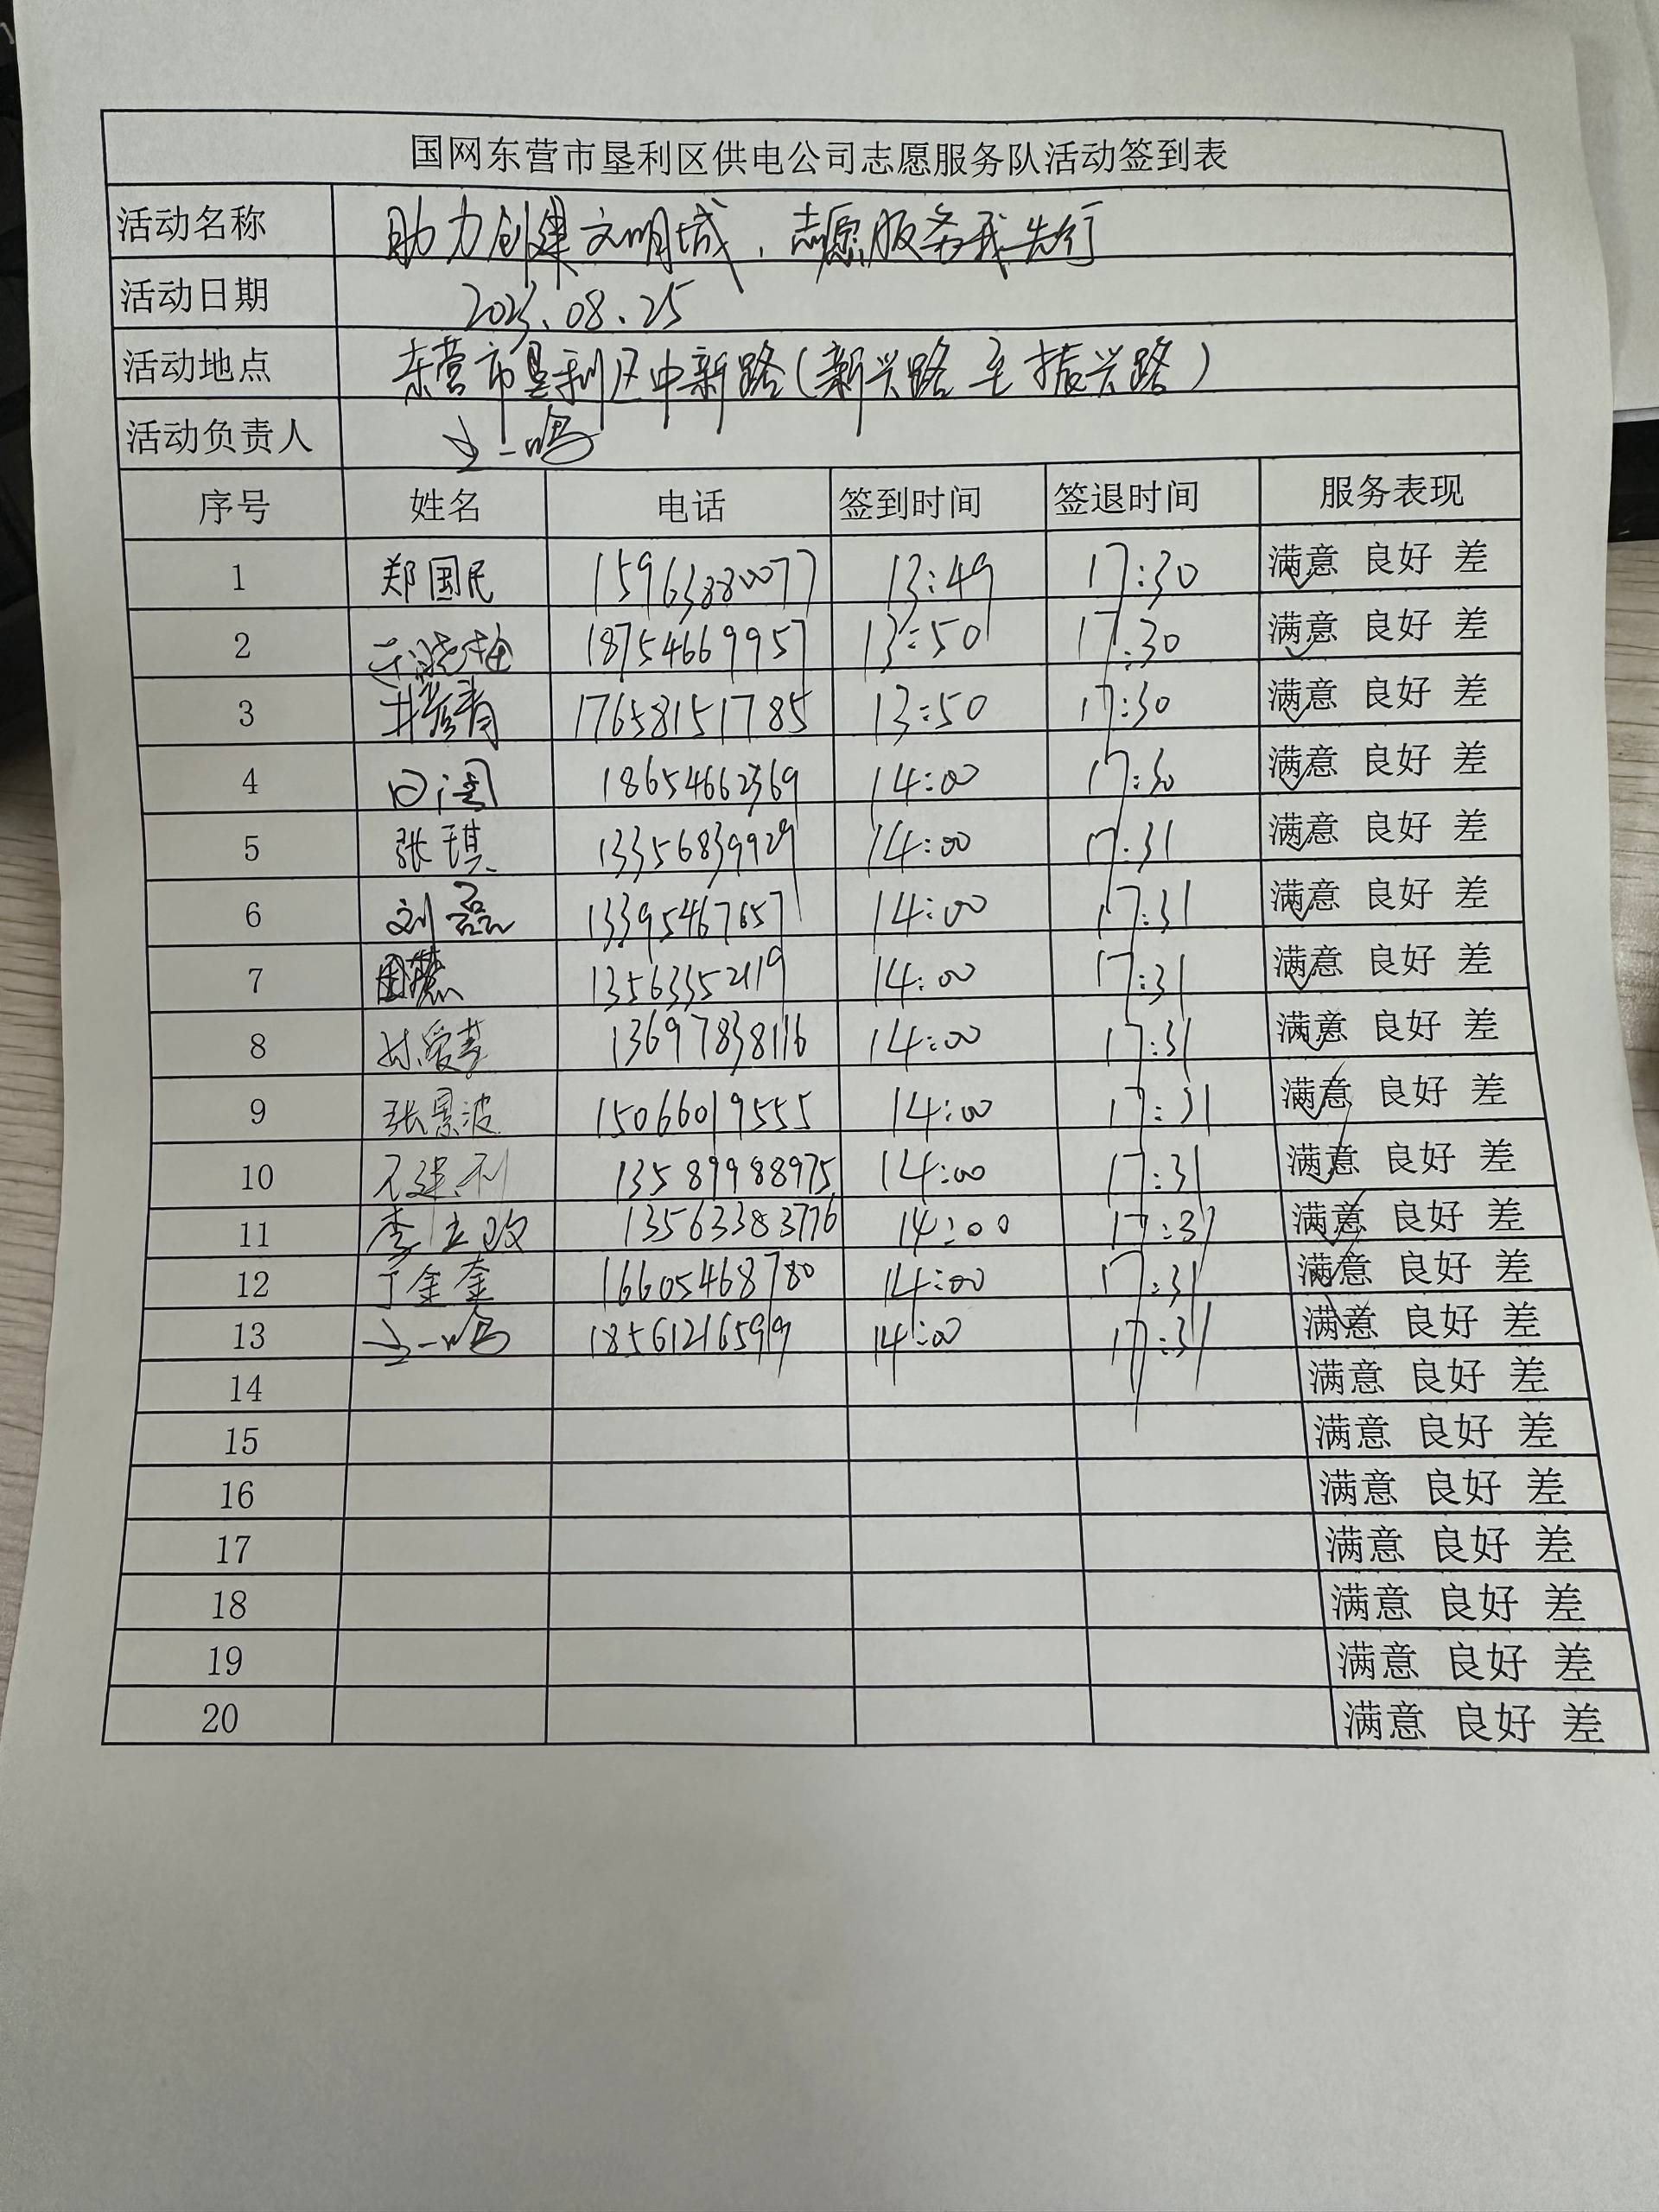 国网东营市垦利区供电公司志愿服务队活动签到表
活动名称 助力创建文明城，志愿服务我先行
活动日期 2023.08.25
活动地点 东营市垦利区中新路(新兴路至振兴路)
活动负责人 一鸣
序号 姓名 电话 签到时间 签退时间 服务表现
1 郑国民 15963880077 13:49 17:30 满意 良好 差
2 18754669957 13:50 17:30 满意 良好 差
3 17658151785 13:50 17:30 满意 良好 差
4 18654662369 14:00 17:30 满意 良好 差
5 张琪 13356839929 14:00 17:31 满意 良好 差
6 刘磊 13395467657 14:00 17:31 满意 良好 差
7 13563352119 14:00 17:31 满意 良好 差
8 13697838116 14:00 17:31 满意 良好 差
9 张景波 15066019555 14:00 17:31 满意 良好 差
10 13589988975 14:00 17:31 满意 良好 差
11 李立政 13563383776 14:00 17:31 满意 良好 差
12 丁金奎 16605468780 14:00 17:31 满意 良好 差
13 一鸣 18561216599 14:00 17:31 满意 良好 差
14 满意 良好 差
15 满意 良好 差
16 满意 良好 差
17 满意 良好 差
18 满意 良好 差
19 满意 良好 差
20 满意 良好 差